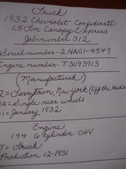 Truck
1932 Chevrolet Confederate
1.5 Ton Canopy Express
Job number 312
Serial number - 2 NA01-4549
Engine number - T3093913
(Manufactured)
2 = Tarrytown, New York (Off the Hudson)
NA = Single rear wheels
01 = January 1932
Engine
194 6 cylinder OHV
T = Truck
Production 12-1931